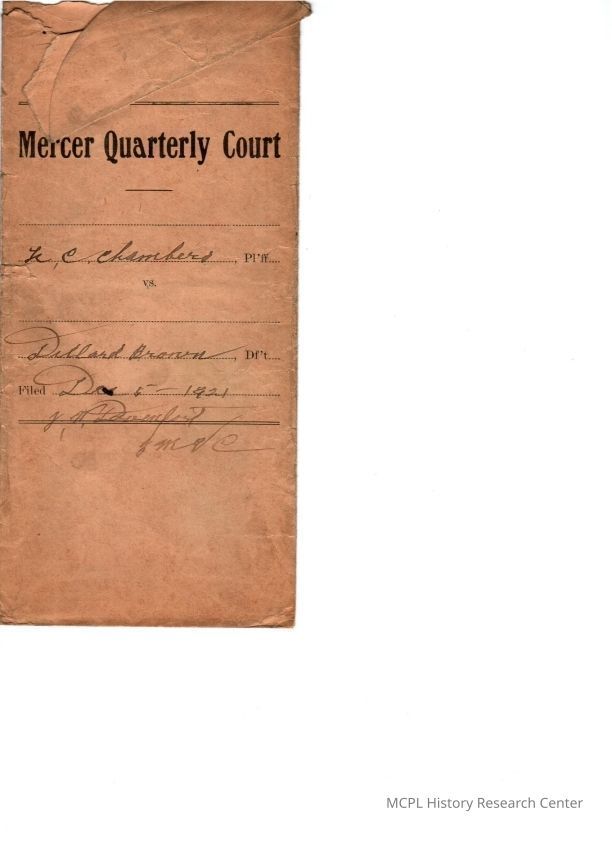 Mercer Quarterly Court
C. Chambers, Pl'ff.
vs.
Dillard Brown, Df't.
Filed Dec 5 - 1921
Davenport
MCPL History Research Center